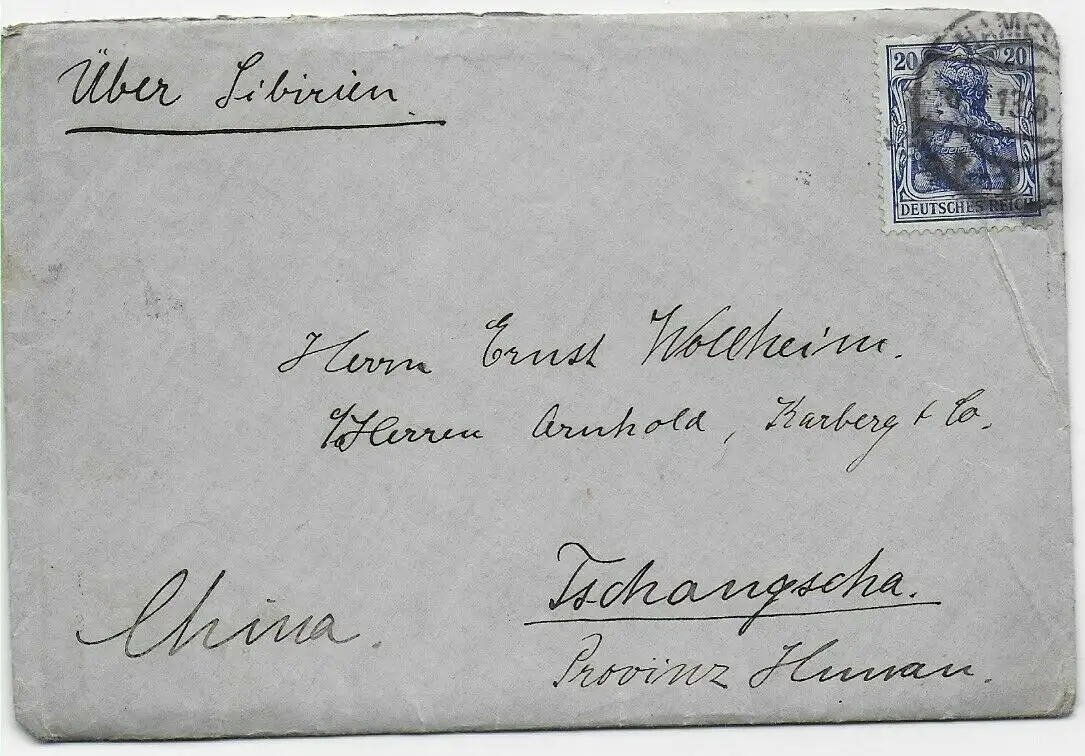 Über Sibirien
HAMB
20 20
13.8
DEUTSCHES REICH
Herrn Ernst Wollheim.
c/o Herren Arnhold, Karberg & Co.
Tschangscha.
China.
Provinz Hunan.